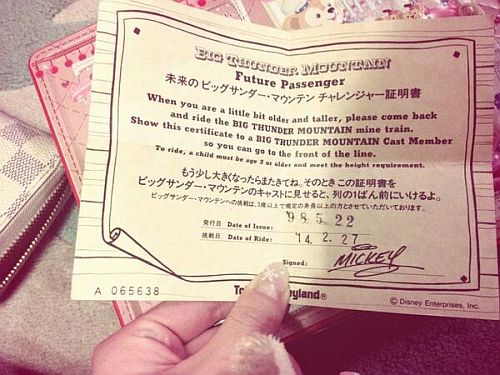 BIG THUNDER MOUNTAIN
Future Passenger
未来のビッグサンダー・マウンテン チャレンジャー証明書
When you are a little bit older and taller, please come back
and ride the BIG THUNDER MOUNTAIN mine train.
Show this certificate to a BIG THUNDER MOUNTAIN Cast Member
so you can go to the front of the line.
To ride, a child must be age 3 or older and meet the height requirement.
もう少し大きくなったらまたきてね。そのときこの証明書を
ビッグサンダー・マウンテンのキャストに見せると、列の1ばん前にいけるよ。
ビッグサンダー・マウンテンへの挑戦は、3歳以上で規定の身長以上の方とさせていただいております。
発行日 Date of Issue: '98 5. 22
挑戦日 Date of Ride: '14. 2. 27
Signed: MICKEY
A 065638
© Disney Enterprises, Inc.